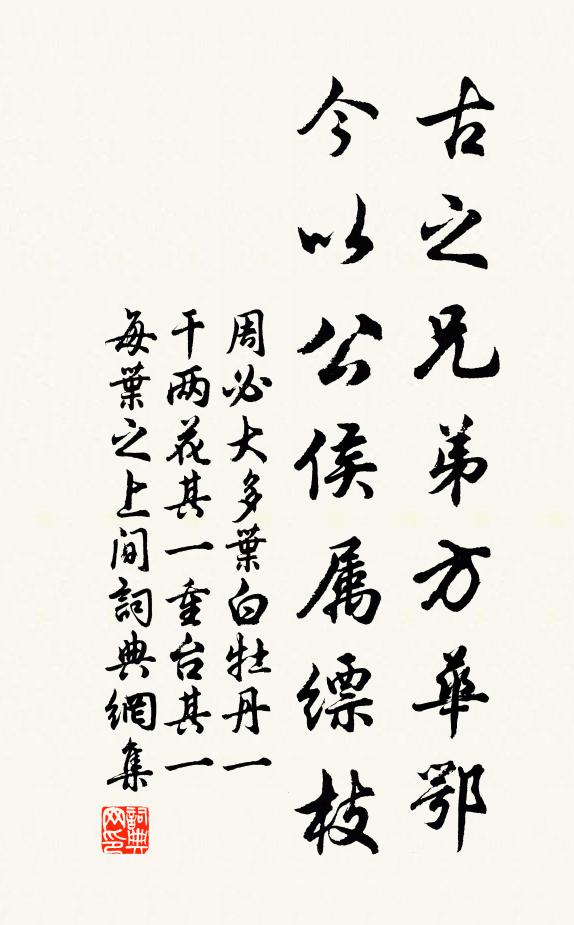 古之兄弟方華鄂
今以公侯属缥枝
周必大多葉白牡丹一
干两花其一重台其一
每葉之上间詞典網集
詞典网印